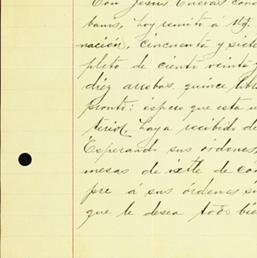 Con Jesus Cuevas con
bans, hoy remito á Ud.
nación, cincuenta y siete
pleto de ciento veinte y
diez arrobas, quince libr
pronto: espero que esta
terior, haya recibido de
Esperando sus órdenes,
mesas de ixtle de con
pre á sus órdenes su
que le desea todo bie